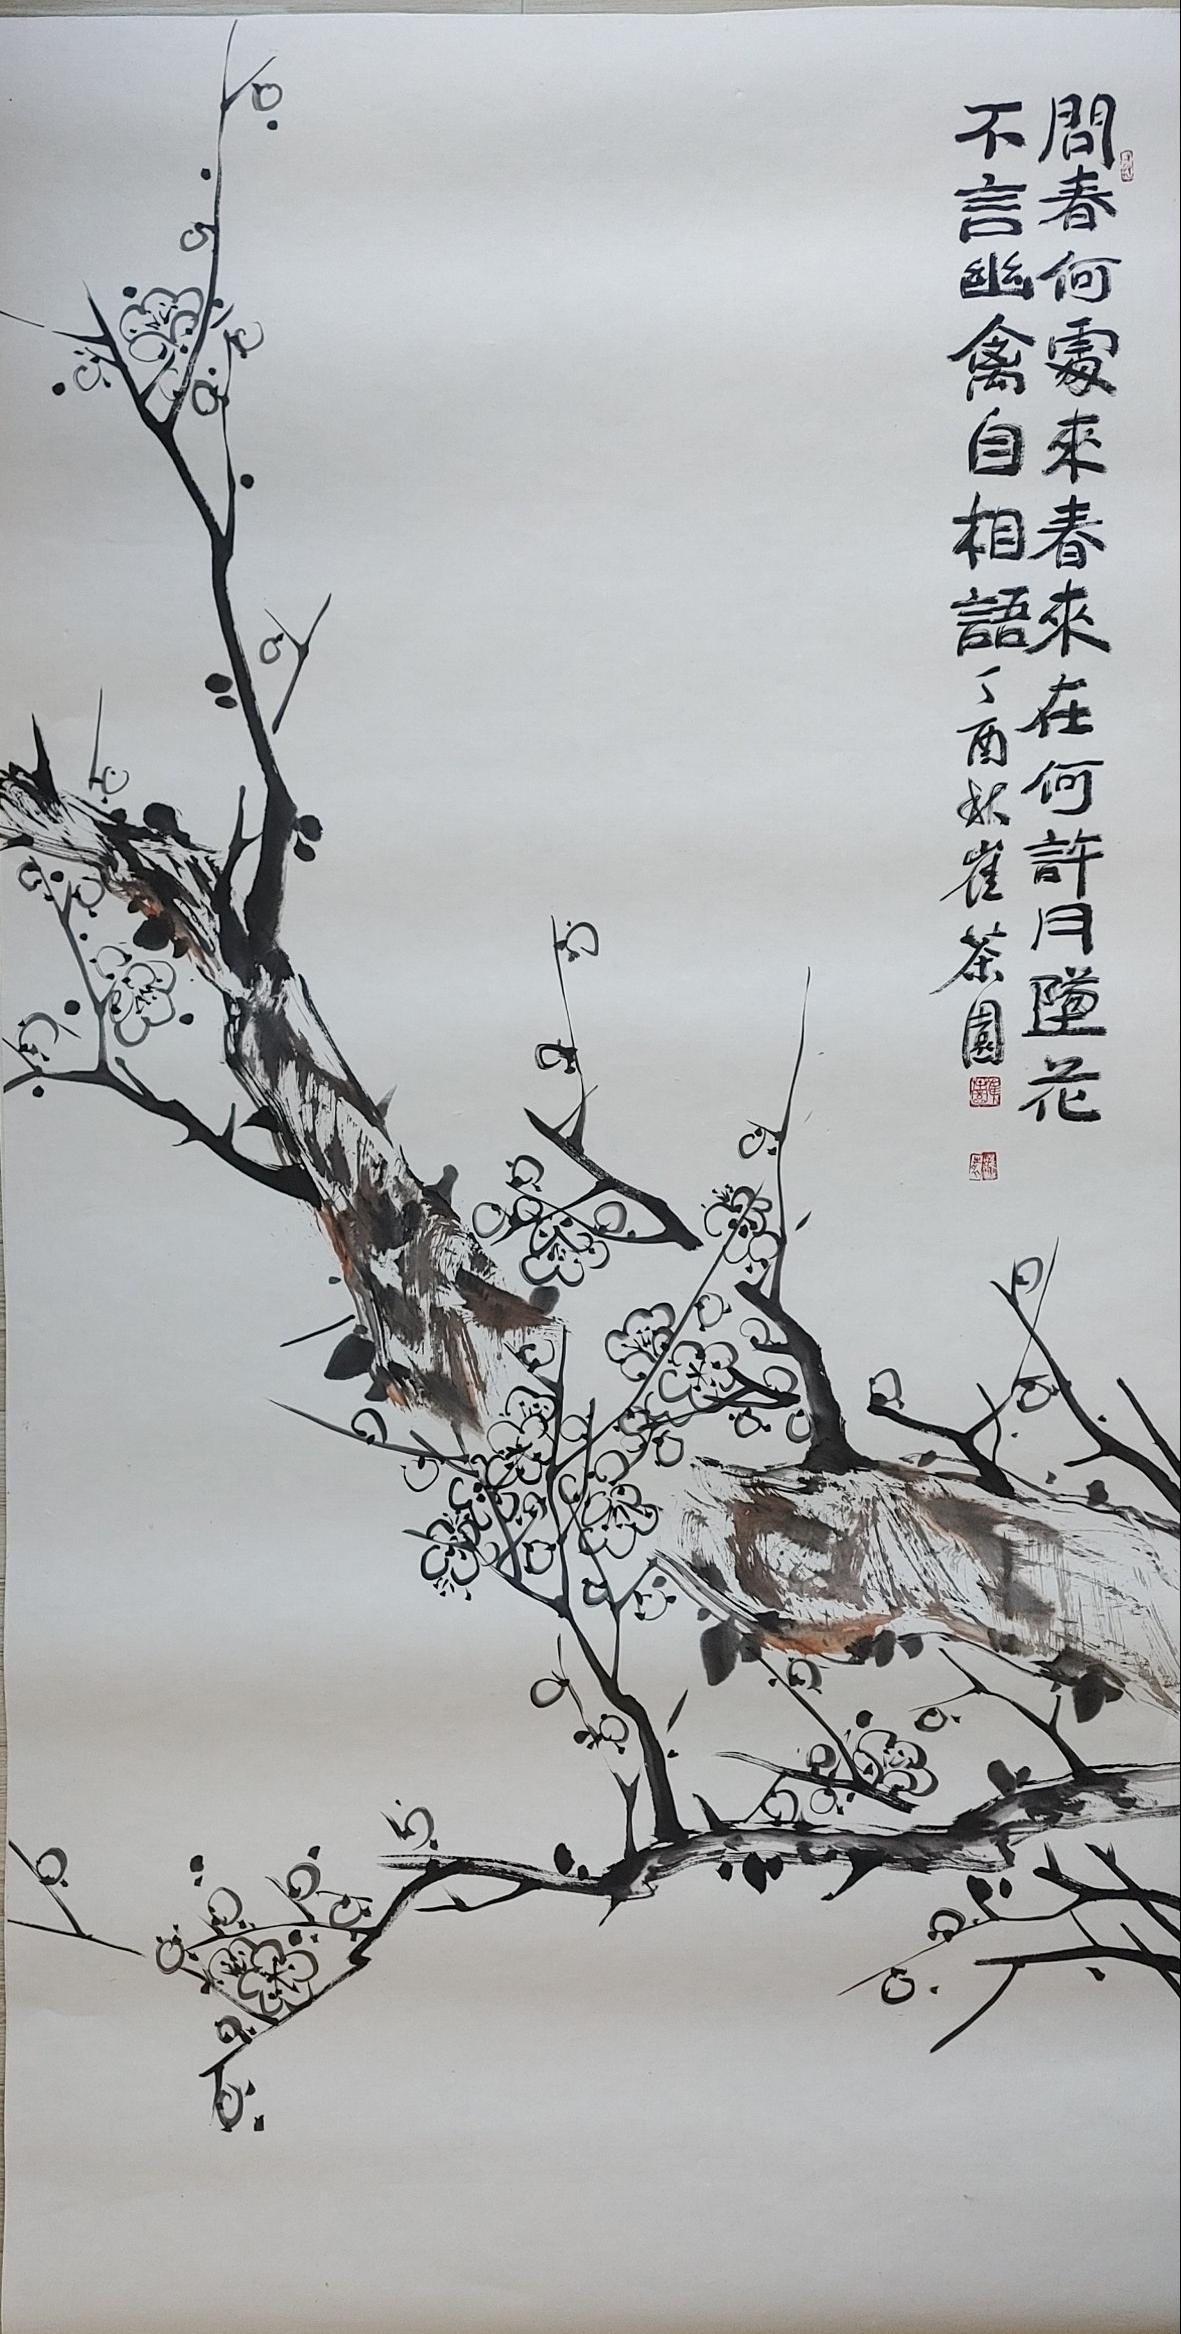 問春何處來春來在何許月墮花
不言幽禽自相語丁酉秋崔茶園